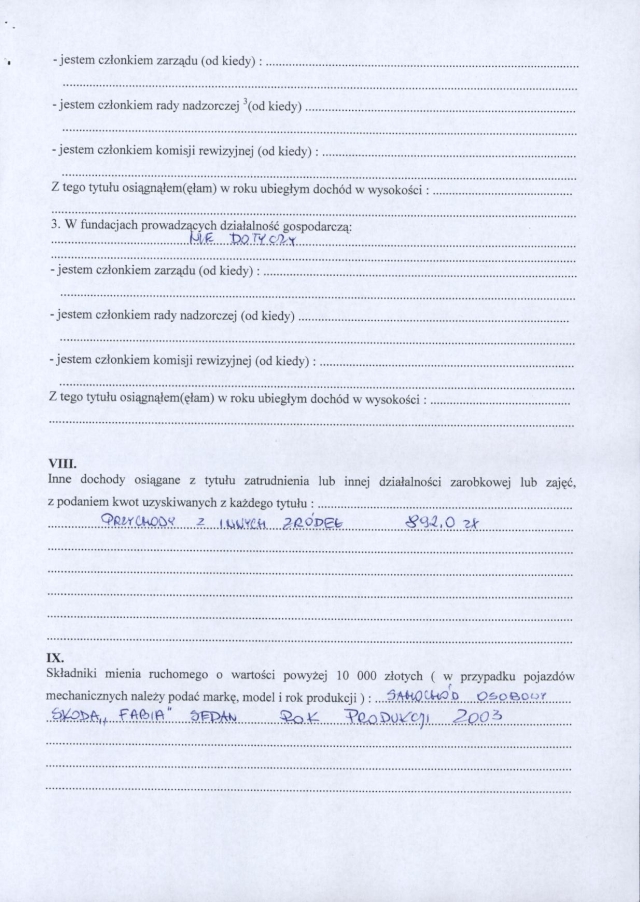 - jestem członkiem zarządu (od kiedy) : ........................
........................
- jestem członkiem rady nadzorczej ³(od kiedy) ........................
........................
- jestem członkiem komisji rewizyjnej (od kiedy) : ........................
........................
Z tego tytułu osiągnąłem(ęłam) w roku ubiegłym dochód w wysokości : ........................
........................
3. W fundacjach prowadzących działalność gospodarczą:
NIE DOTYCZY
........................
- jestem członkiem zarządu (od kiedy) : ........................
........................
- jestem członkiem rady nadzorczej (od kiedy) ........................
........................
- jestem członkiem komisji rewizyjnej (od kiedy) : ........................
........................
Z tego tytułu osiągnąłem(ęłam) w roku ubiegłym dochód w wysokości : ........................
........................
VIII.
Inne dochody osiągane z tytułu zatrudnienia lub innej działalności zarobkowej lub zajęć,
z podaniem kwot uzyskiwanych z każdego tytułu : ........................
PRZYCHODY Z INNYCH ŹRÓDEŁ 892.0 zł
........................
........................
........................
........................
........................
IX.
Składniki mienia ruchomego o wartości powyżej 10 000 złotych ( w przypadku pojazdów
mechanicznych należy podać markę, model i rok produkcji ) : SAMOCHÓD OSOBOWY
SKODA „FABIA" SEDAN ROK PRODUKCJI 2003
........................
........................
........................